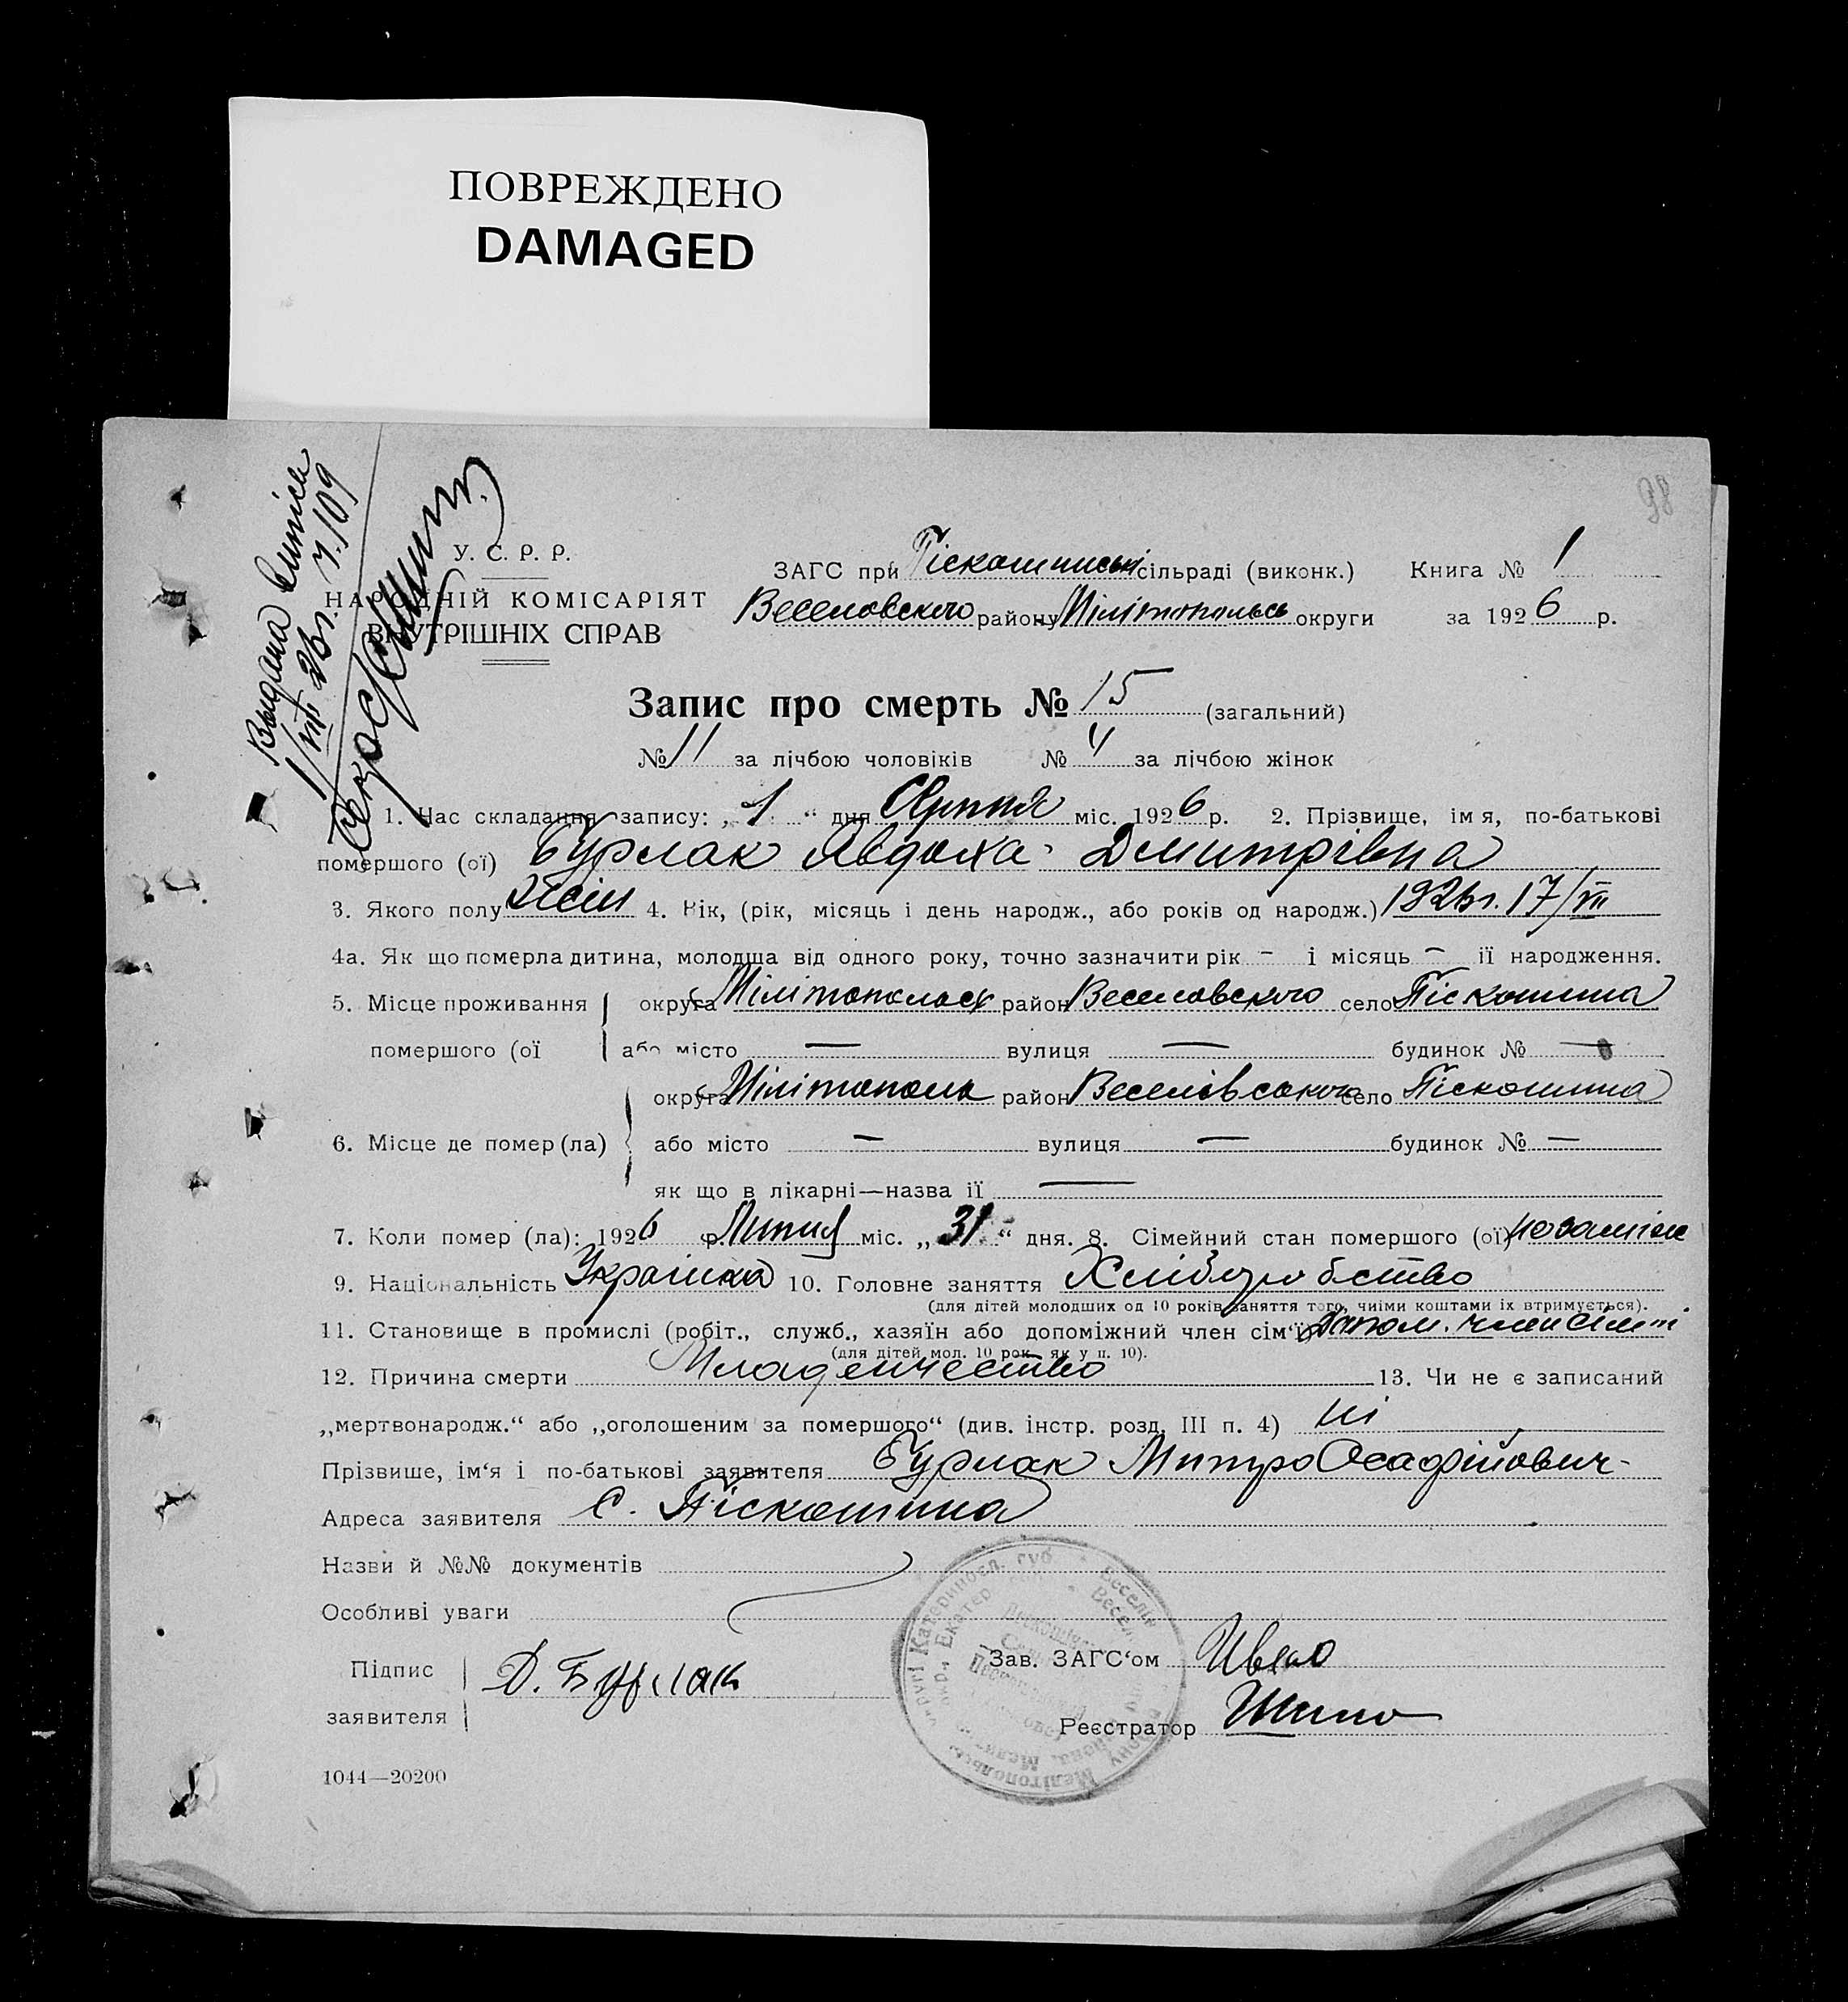 ПОВРЕЖДЕНО
DAMAGED
98
Выдана Випись
1/VIII 26г. ч.109
У. С. Р. Р.
НАРОДНІЙ КОМІСАРІЯТ
ВНУТРІШНІХ СПРАВ
ЗАГС при Піскошинські сільраді (виконк.) Книга № 1
Веселовского району Мілітопольсь округи за 1926 р.
Запис про смерть № 15 (загальний)
№ 11 за лічбою чоловіків № 4 за лічбою жінок
1. Час складання запису: „1“ дня Серпня міс. 1926 р. 2. Прізвище, імя, по-батькові
помершого (ої) Бурлак Явдоха Дмитрівна
3. Якого полу жін 4. Вік, (рік, місяць і день народж., або років од народж.) 1926г. 17/VII
4а. Як що померла дитина, молодша від одного року, точно зазначити рік – і місяць – її народження.
5. Місце проживання округа Мілітопольск район Веселовского село Піскошина
помершого (ої або місто — вулиця — будинок № —
округа Мілітополь район Веселівського село Піскошина
6. Місце де помер (ла) або місто — вулиця — будинок № —
як що в лікарні—назва її —
7. Коли помер (ла): 1926 р. Липня міс. „31“ дня. 8. Сімейний стан помершого (ої) незаміж
9. Національність Українка 10. Головне заняття Хліборобство
(для дітей молодших од 10 років заняття того, чиїми коштами їх втримується).
11. Становище в промислі (робіт., служб., хазяїн або допоміжний член сім'ї) Допом. член сімї
(для дітей мол. 10 рок. як у п. 10).
12. Причина смерти Младенчество 13. Чи не є записаний
„мертвонародж.“ або „оголошеним за помершого“ (див. інстр. розд. III п. 4) ні
Прізвище, ім'я і по-батькові заявителя Бурлак Митро Осафійович
Адреса заявителя с. Піскошина
Назви й №№ документів
Особливі уваги
Підпис Д. Бурлак Зав. ЗАГС'ом
заявителя Реєстратор
1044—20200